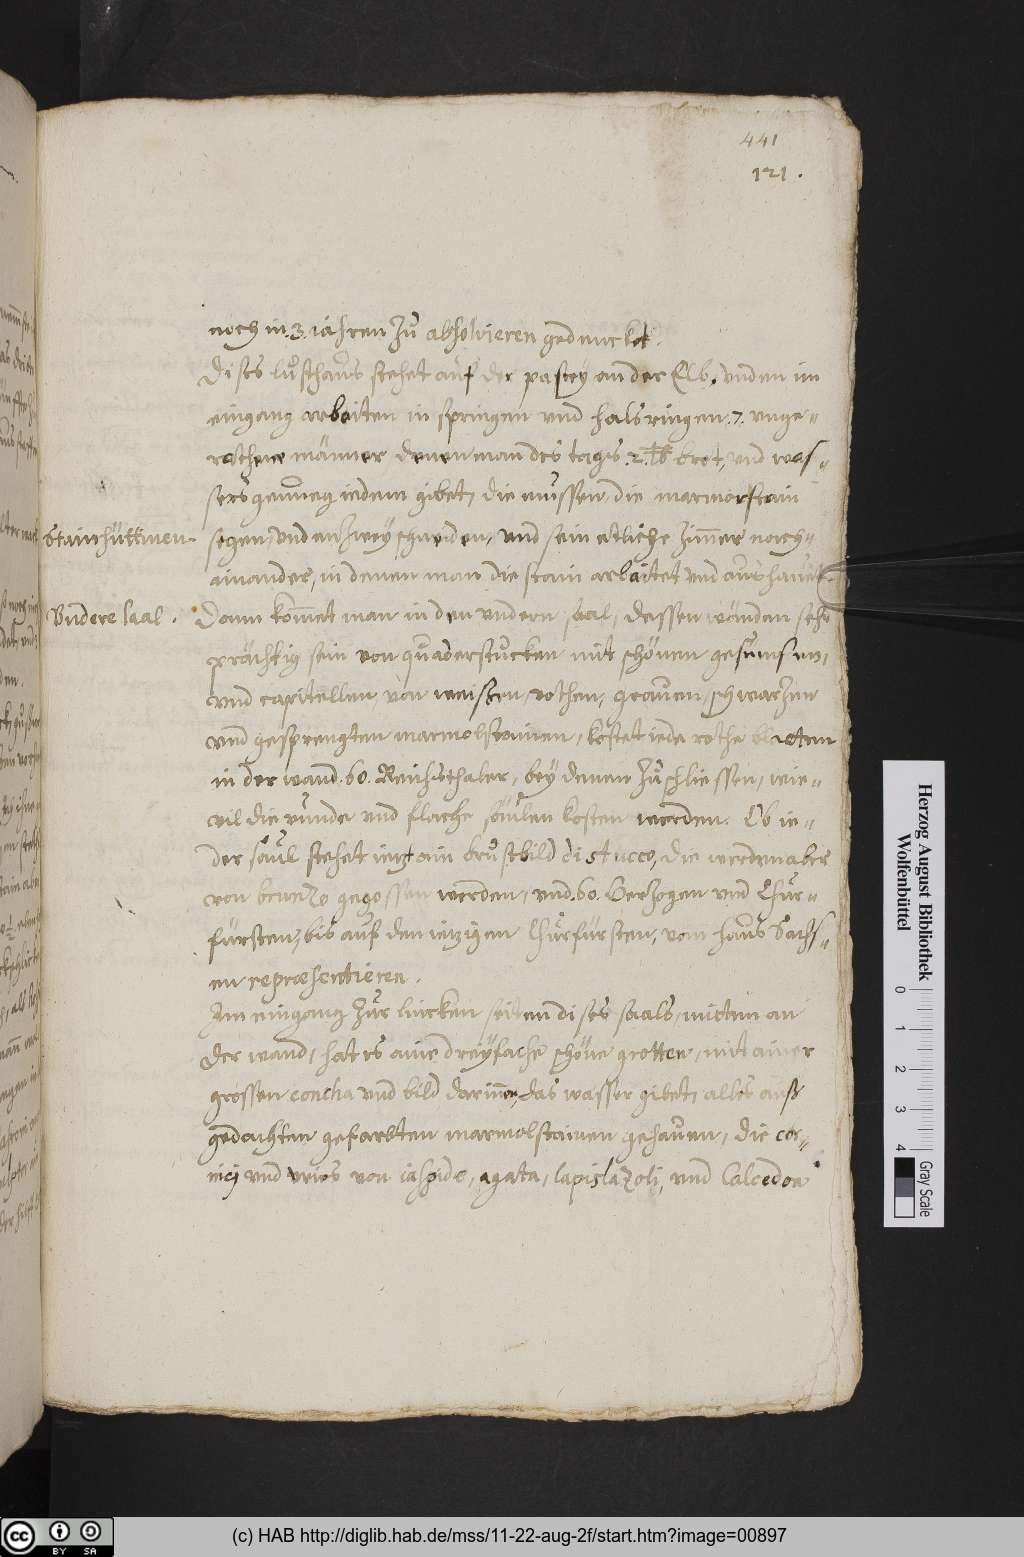 441
121.
noch in .3. jahren zů absolvieren gedenncket.
Dises lůsthaůs stehet aůf der pastey an der Elb, unden im
eingang arbaiten in springen und halsringen .7. unge-
rathene männer denen man des tags .2. lb brot, und was-
sers genůeg iedem gibet, die müssen die marmorstain
Stainhüttinen.
segen, und entzwey schneiden, und sein etliche zimer nach-
ainander, in denen man die stain arbaitet und aůshauet.
Undere saal.
Dann kommet man in den undern saal, dessen wänden sehr
prächtig sein von quaderstůcken mit schönen gesůmsen,
und capitellen, von weissen, rothen, graůen, schwarzen
und gesprengten marmolstainen, kostet iede rothe blatten
in der wand .60. Reichsthaler, bey denem zůschliessen, wie-
vil die runde und flache säulen kosten werden. Ob ie-
der säůl stehet iezt ain brůstbild di stucco, die werden aber
von brunzo gegossen werden, und .60. Herzogen und Chůr-
fürsten, bis auf den iezigen Chůrfürsten, vom haůs Sachs-
en repræsentieren.
Im eingang zůr lincken seiten dises saals, mitten an
der wand, hat es aine dreyfache schöne grotten, mit ainer
grossen concha und bild darinnen, das wasser gibet, alles auß
gedachten gefarbten marmolstainen gehaůen, die cor-
nici und vries von iaspide, agata, lapislazoli, und Calcedon
Herzog August Bibliothek
Wolfenbüttel
0 1 2 3 4
Gray Scale
cc BY SA
(c) HAB http://diglib.hab.de/mss/11-22-aug-2f/start.htm?image=00897